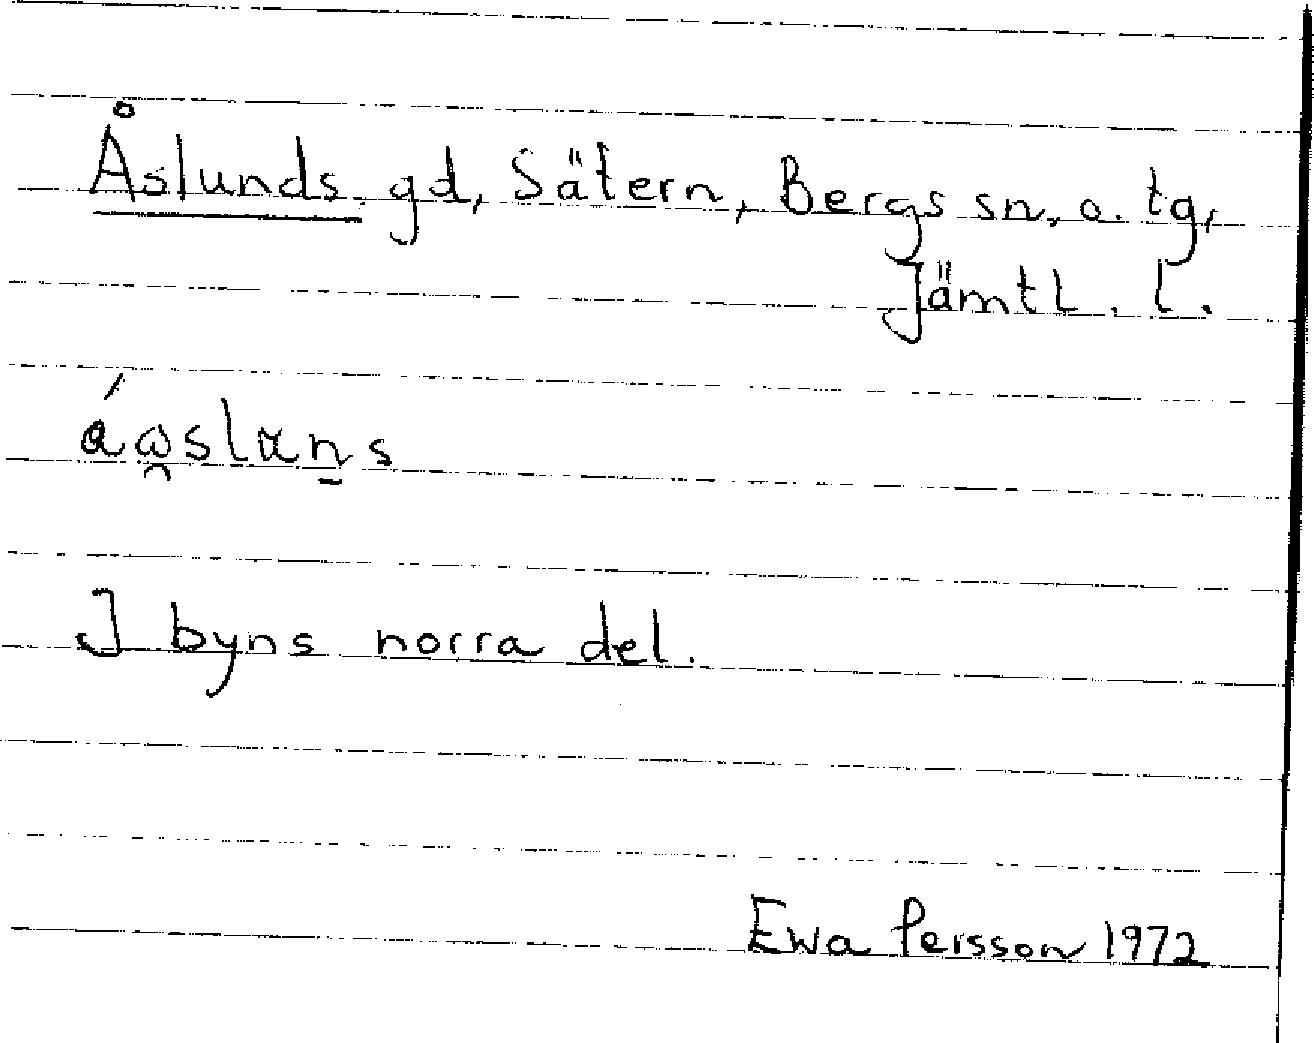 Åslunds. gd, Sätern, Bergs sn. o. tg,
Jämtl. l.
áω̯slαn̲s
I byns norra del.
Ewa Persson 1972